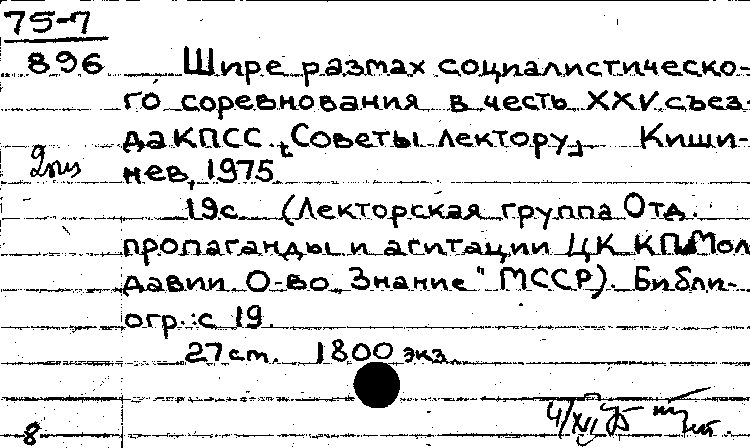 75-7
896 Шире размах социалистическо-
го соревнования в честь XXV съез-
да КПСС. [Советы лектору] Киши-
нев, 1975.
19с. (Лекторская группа Отд.
пропаганды и агитации ЦК КП Мол
давии О-во „Знание" МССР). Библи-
огр.: с 19.
27 см. 1800 экз.
4/XII 75
8